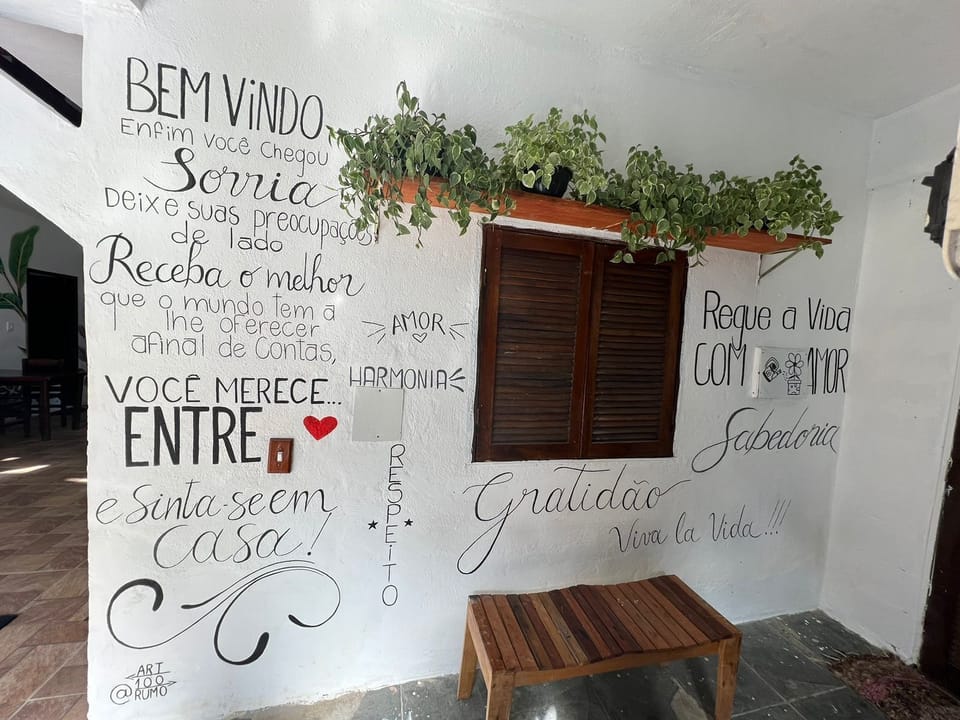 BEM ViNDO
Enfim você Chegou
Sorria
Deixe suas preocupações
de lado
Receba o melhor
que o mundo tem a
lhe oferecer
afinal de Contas,
VOCÊ MERECE...
ENTRE
e Sinta-se em
casa!
ART
100
@RUMO
AMOR
HARMONIA
RESPEITO
Gratidão
Viva la Vida!!!
Regue a Vida
COM AMOR
Sabedoria